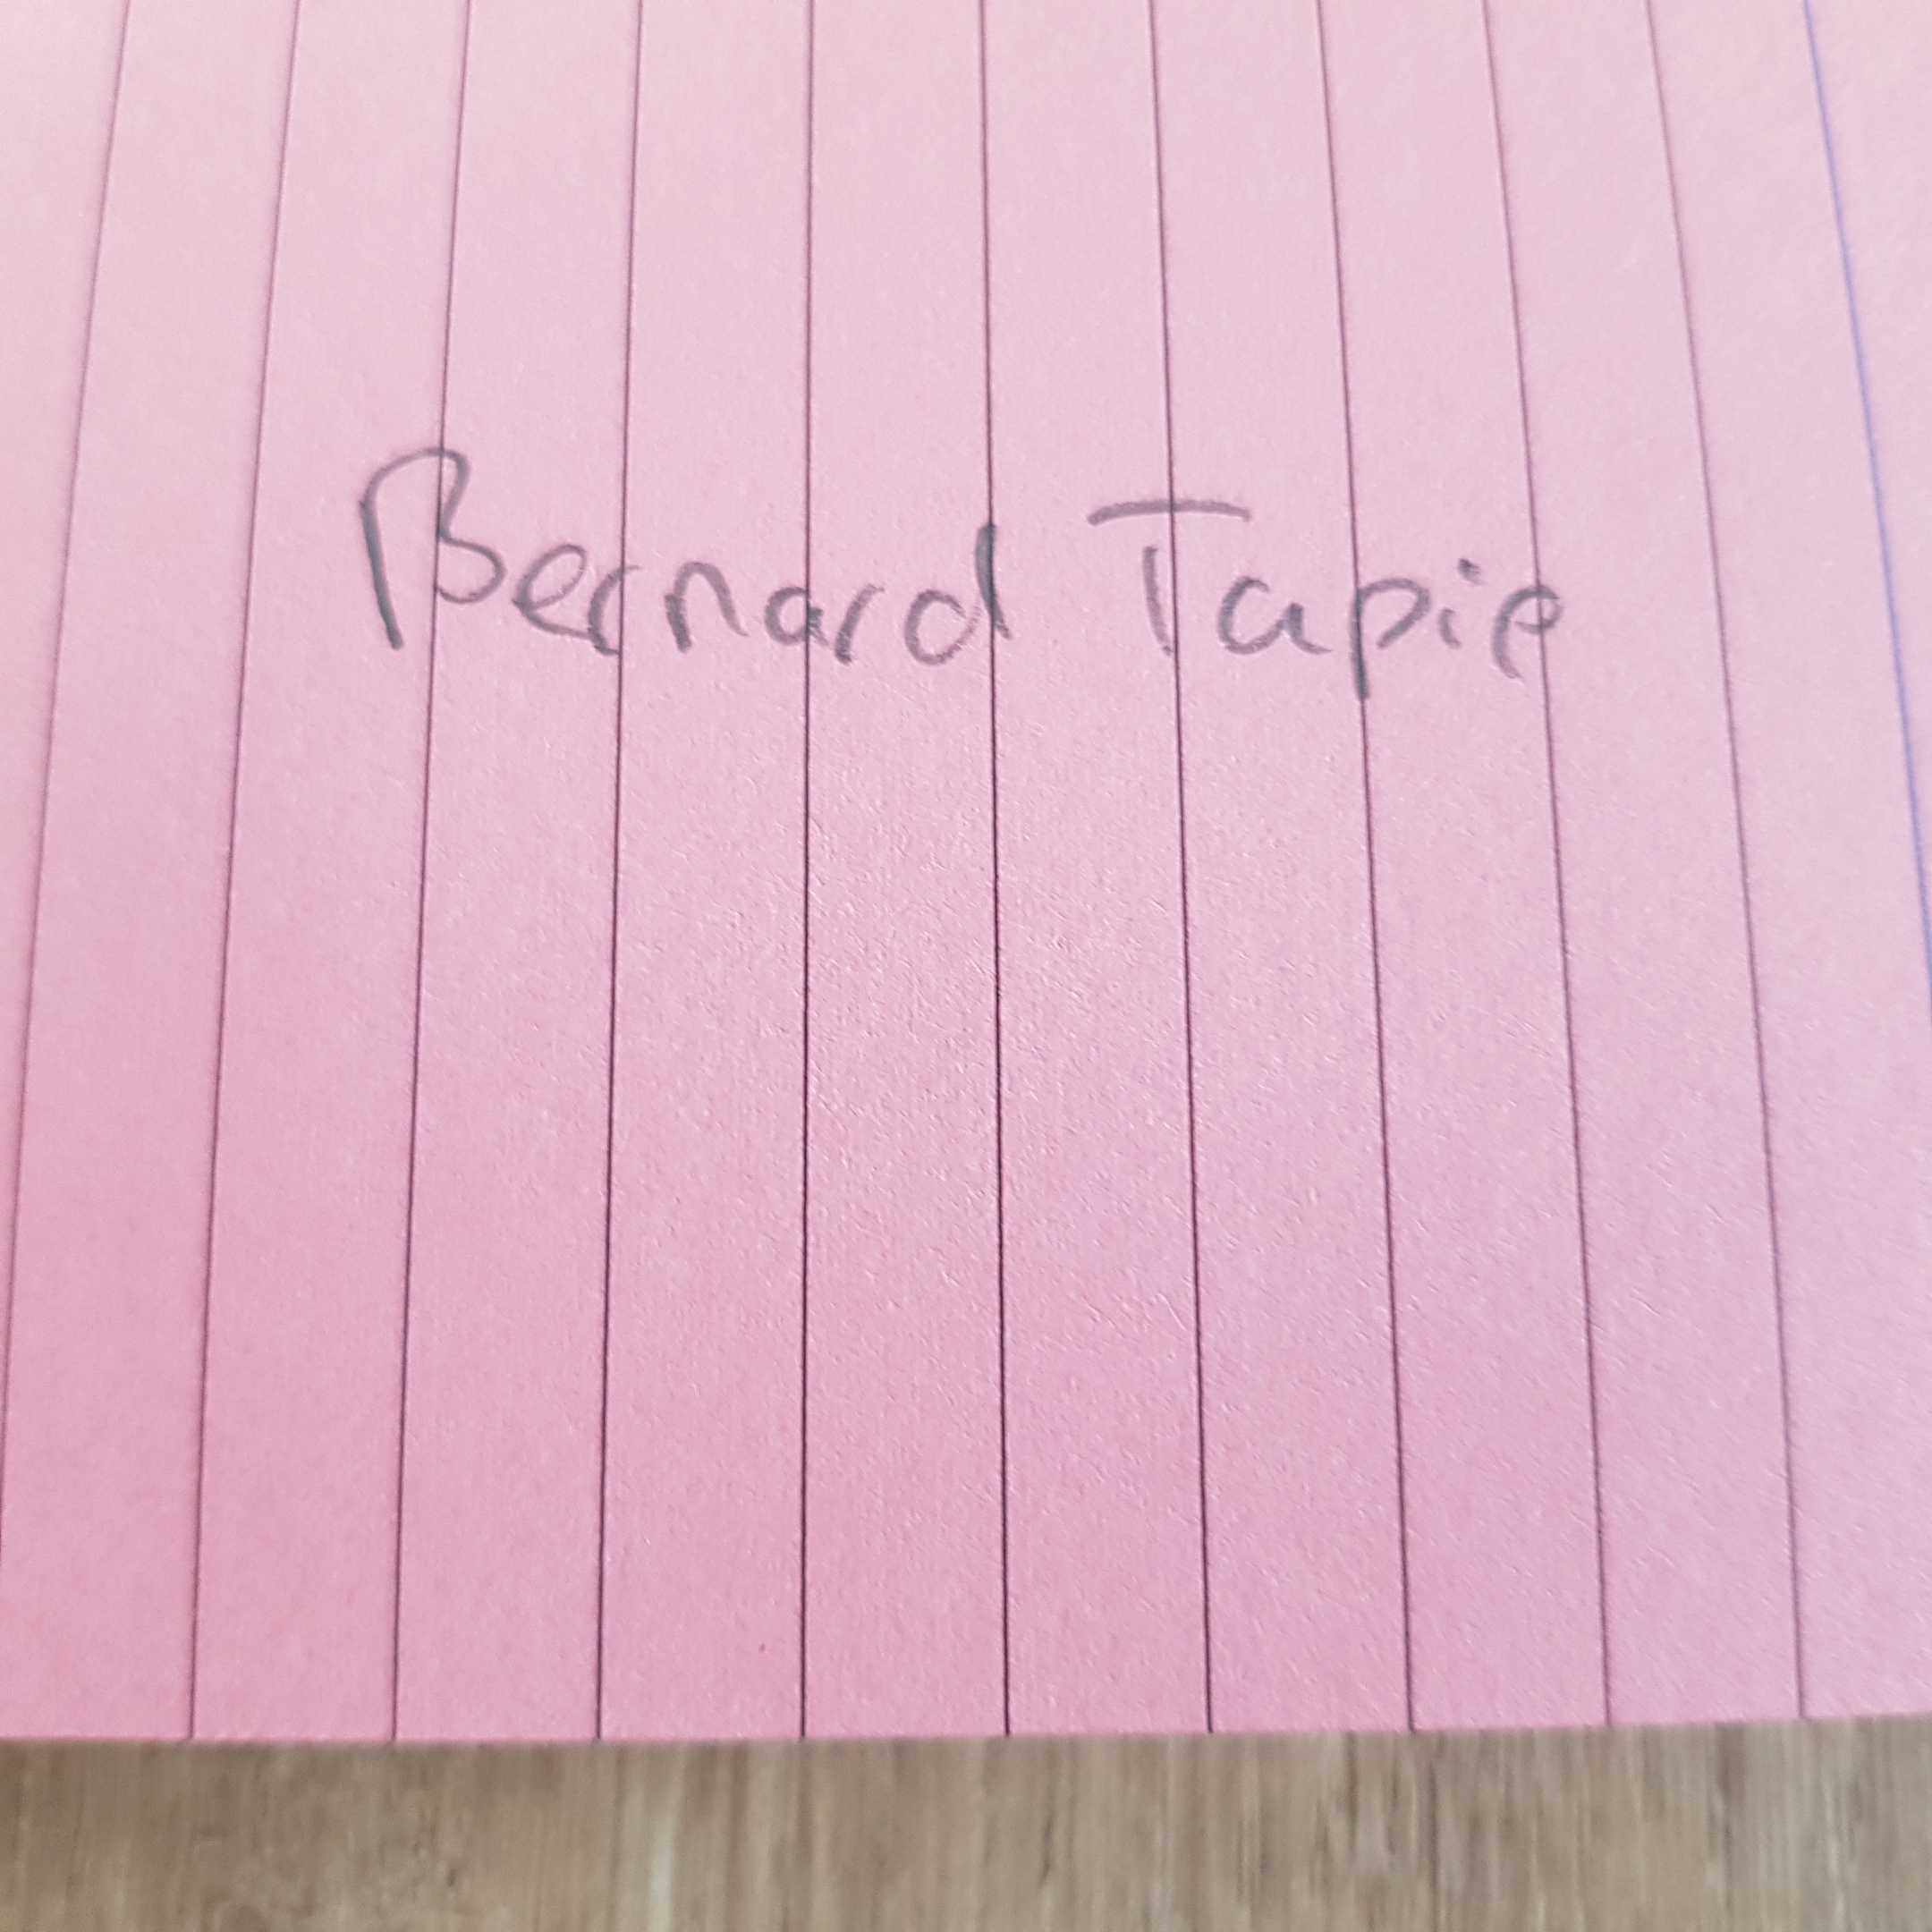 Bernard Tapie